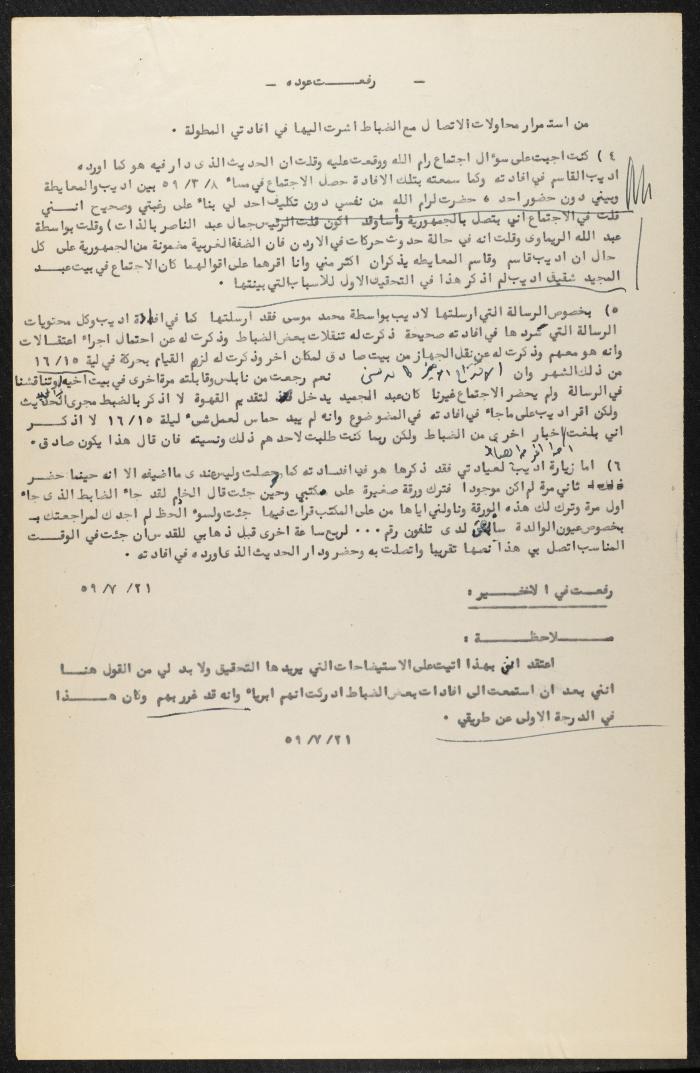 — رفعت عوده —
من استمرار محاولات الاتصال مع الضباط اشرت اليها في افادتي المطولة .
٤ ) كنت اجبت على سؤال اجتماع رام الله ووقعت عليه وقلت ان الحديث الذى دار فيه هو كما اورده
اديب القاسم في افادته وكما سمعته بتلك الافادة حصل الاجتماع في مساء ٨ /٣/ ٥٩ بين اديب والمعايطة
وبيني دون حضور احد ٥ حضرت لرام الله من نفسي دون تكليف احد لي بناء على رغبتي وصحيح انــني
قلت في الاجتماع اني بتصل بالجمهورية وأساوقد اكون قلت الرئيس جمال عبد الناصر بالذات ) وقلت بواسطة
عبد الله الريماوى وقلت انه في حالة حدوث حركات في الاردن فان الضفة الغربية مضمونة من الجمهورية على كل
حال ان اديب قاسم وقاسم المعايطه يذكران اكثر مني وانا اقرهما على اقوالهما كان الاجتماع في بيت عبــد
المجيد شقيق اديب لم اذكر هذا في التحقيق الاول للأسباب التي بينتها .
٥ ) بخصوص الرسالة التي ارسلتها لاديب بواسطة محمد موسى فقد ارسلتها كما في افادة اديب وكل محتويات
الرسالة التي سردها في افادته صحيحة ذكرت له تنقلات بعض الضباط وذكرت له عن احتمال اجراء اعتقــالات
وانه هو معهم وذكرت له عن نقل الجهاز من بيت صادق لمكان اخر وذكرت له لزم القيام بحركة في لية ١٦/١٥
من ذلك الشهر وان نعم رجعت من نابلس وقابلته مرة اخرى في بيت اخيه وتناقشنا
في الرسالة ولم يحضر الاجتماع غيرنا كان عبد الحميد يدخل لتقديم القهوة لا اذكر بالضبط مجرى الحديث
ولكن اقر اديب على ماجاء في افادته في المضوضوع وانه لم يبد حماس لعمل شيء ليلة ١٦/١٥ لا اذكــر
اني بلغت اخبار اخرى من الضباط ولكن ربما كنت طلبت لاحدهم ذلك ونسيته فان قال هذا يكون صادق .
٦ ) اما زيارة اديب لعيادتي فقد ذكرها هو في افادته كما حصلت وليس عندى ما اضيفه الا انه حينما حضــر
ثاني مرة لم اكن موجودا فترك ورقة صغيرة على مكتبي وحين جئت قال الخادم لقد جاء الضابط الذى جاء
اول مرة وترك لك هذه الورقة وناولني اياها من على المكتب قرأت فيها جئت ولسوء الحظ لم اجدك لمراجعتك بــ
بخصوص عيون الوالدة سابقى لدى تلفون رقم ... لربع ساعة اخرى قبل ذهابي للقدس ان جئت في الوقــت
المناسب اتصل بي هذا نصها تقريبا واتصلت به وحضر ودار الحديث الذى اورده في افادته .
رفعت في الاخــير : ٢١/ ٧/ ٥٩
مــلاحظــة :
اعتقد انني بهذا اتيت على الاستيضاحات التي يريدها التحقيق ولا بد لي من القول هنــا
انني بعد ان استمعت الى افادات بعض الضباط ادركت انهم ابرياء وانه قد غرر بهم وكان هــذا
في الدرجة الاولى عن طريقي .
٢١/ ٧/ ٥٩